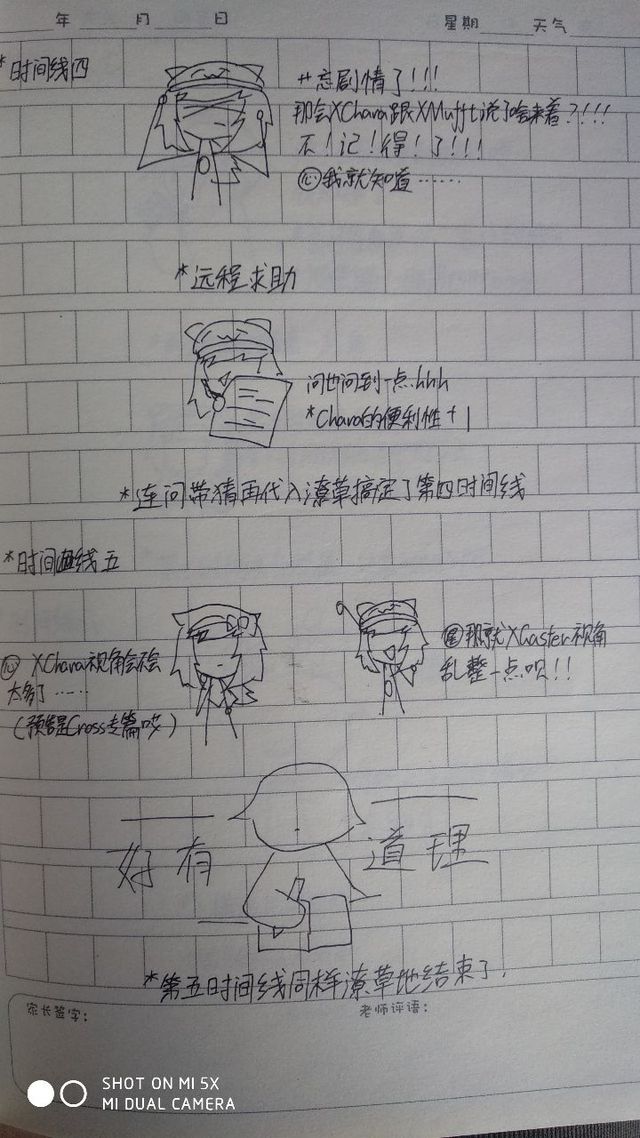 年 月 日 星期 天气
*时间线四
艹忘剧情了!!!
那会XChara跟XMuffet说了啥来着?!!!
不!记!得!了!!!
心 我就知道……
*远程求助
问也问到一点.hhh
*Chara的便利性+1
*连问带猜再代入潦草搞定了第四时间线
*时间线五
心 XChara视角会不会
太多了……
(预告是Cross专篇哎)
星 那就XGaster视角
乱整一点呗!!
好有道理
*第五时间线同样潦草地结束了.
家长签字: 老师评语:
SHOT ON MI 5X
MI DUAL CAMERA